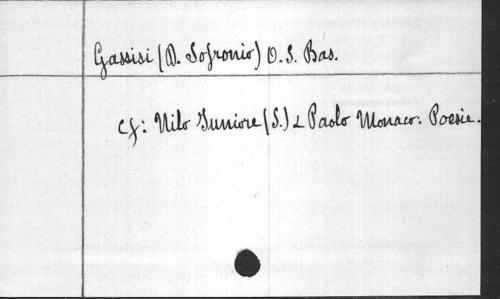 Gassisi (D. Sofronio) O. S. Bas.
cf: Nilo Juniore (S.) & Paolo Monaco: Poesie.